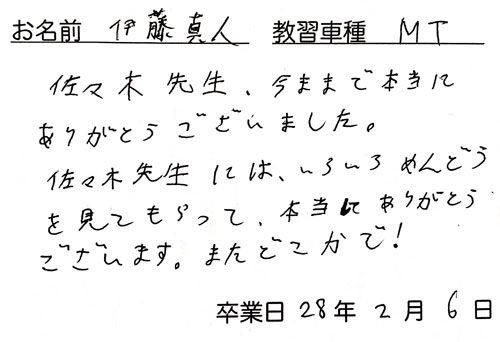 お名前 伊藤真人 教習車種 MT
佐々木先生、今ままで本当に
ありがとうございました。
佐々木先生には、いろいろめんどう
を見てもらって、本当にありがとう
ございます。またどこかで!
卒業日28年2月6日